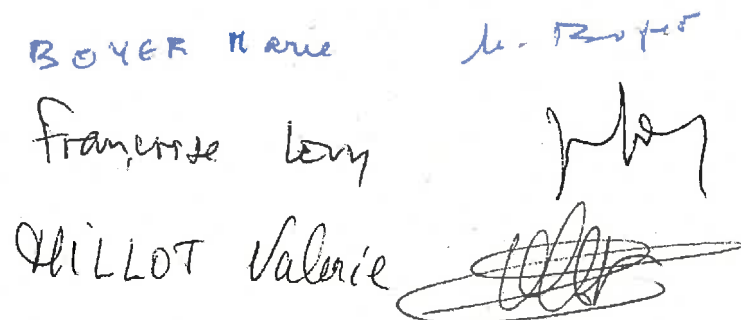 BOYER Marie M. Boyer
Françoise Levy
MILLOT Valérie